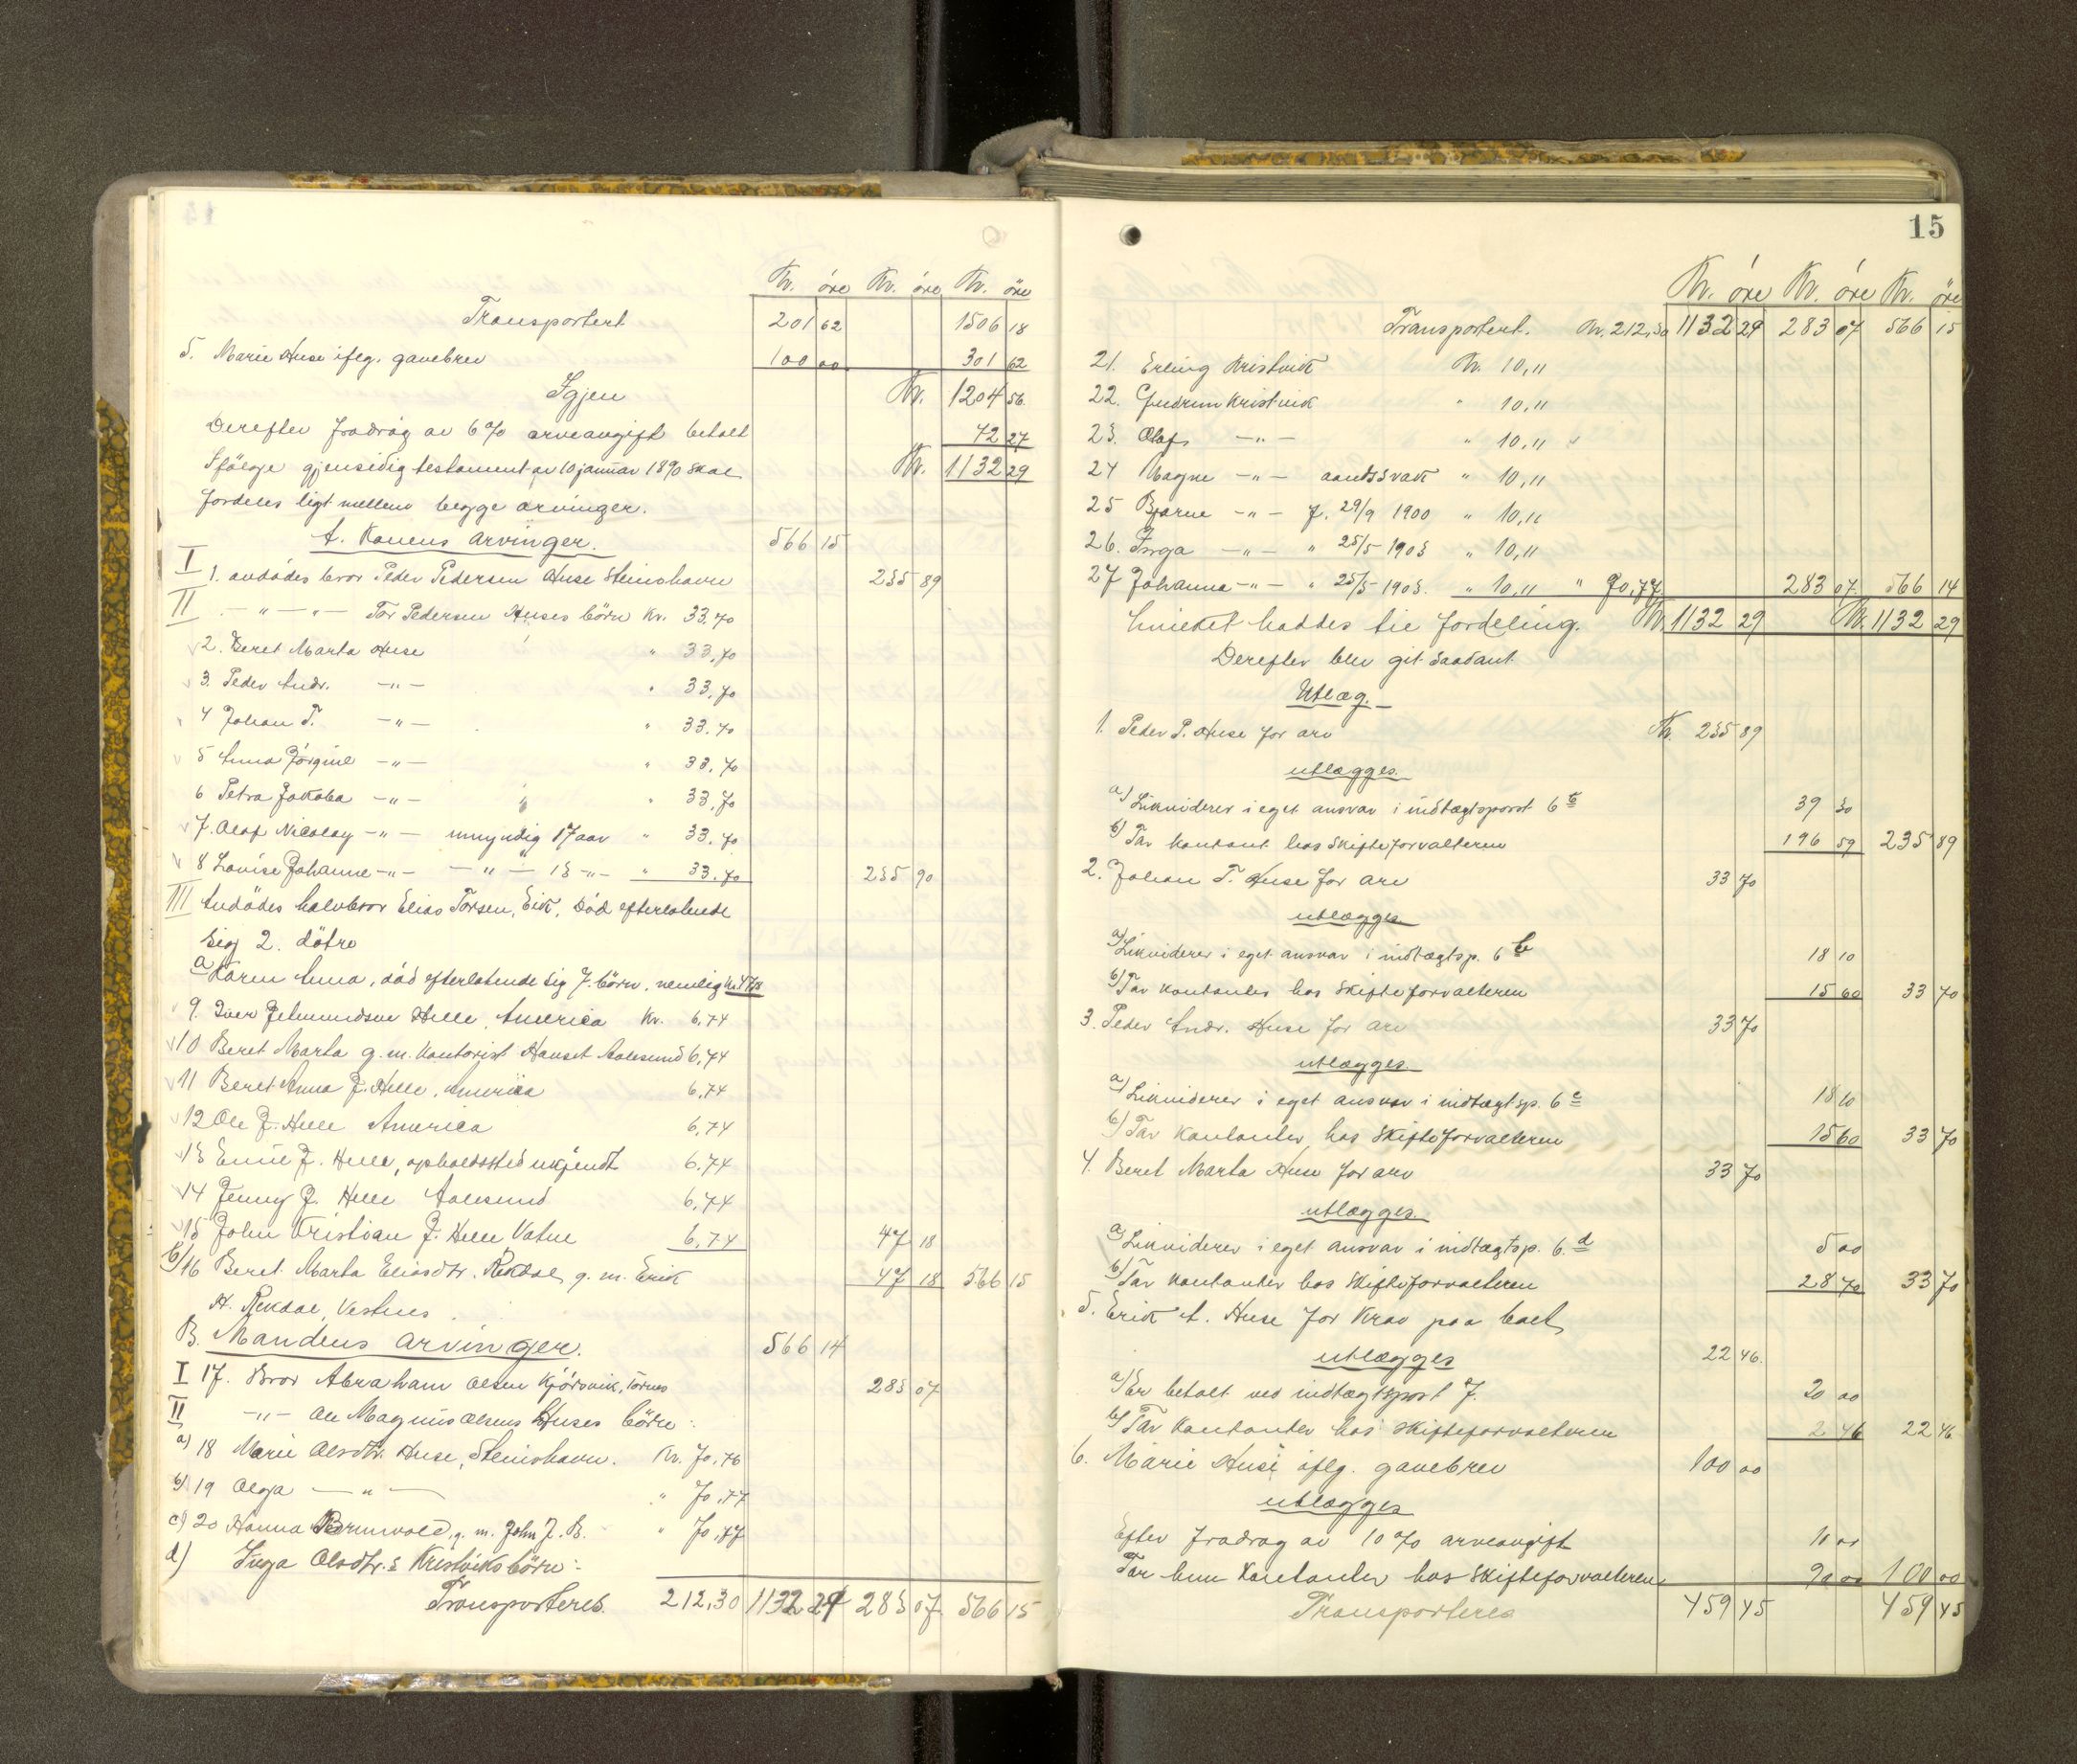 Kr. øre Kr. øre Kr. øre
Transportert 201 62 1506 18
5. Marie Huse iflg. gavebrev 100 00 301 62
Igjen Kr. 1204 56
Derefter fradrag av 6% arveavgift betalt 72 27
Ifølge gjensidig testament av 10 januar 1890 skal Kr. 1132 29
fordeles ligt mellem begge arvinger.
A. Konens arvinger. 566 15
I 1. avdødes bror Peder Pedersen Huse Steinshavn 235 89
II - " - " - Tor Pedersen Huses börn Kr. 33,70
2. Beret Marta Huse " 33,70
3. Peder Andr. - " - " 33,70
4 Johan T. - " - " 33,70
5 Anna Jörgine - " - " 33,70
6 Petra Jakoba - " - " 33,70
7. Olaf Nicolay - " - umyndig 17 aar " 33,70
8 Lovise Johanne - " - - " - 13 - " - " 33,70 235 90
III Avdødes halvbror Elias Torsen, Eik, död efterlatende
sig 2. døtre
a Karen Anna, död efterlatende sig 7. börn, nemlig kr. 47,18
9. Iver Jetmundsen Helle, Amerika Kr. 6,74
10 Beret Marta g. m. kontorist Hanset Aalesund 6,74
11 Beret Anna J. Helle, Amerika 6,74
12 Ole J. Helle Amerika 6,74
13 Emil J. Helle, opholdssted ukjendt 6,74
14 Jenny J. Helle Aalesund 6,74
15 John Kristian J. Helle Vatne 6,74 47 18
b/16 Beret Marta Eliasdtr. Rekdal, g. m. Erik 47 18 566 15
H. Rekdal, Vestnes
B. Mandens arvinger. 566 14
I 17. Bror Abraham Olsen Kjörsvik, Tornes 283 07
II - " - Ole Magnus Olsens Huses börn:
a) 18 Marie Olsdtr. Huse, Steinshavn. Kr. 70,76
b) 19 Olga - " - " 70,77
c) 20 Hanna g. m. John J. B. " 70,77
d) Inga Olsdtr.s Kristviks börn:
Transporteres. 212,30 1132 29 283 07 566 15
15
Kr. øre Kr. øre Kr. øre
Transportert. Kr. 212,30 1132 29 283 07 566 15
21. Erling Kristvik Kr. 10,11
22. Gudrun Kristvik " 10,11
23. Olaf - " - " 10,11
24 Magne - " - aandssvak " 10,11
25 Bjarne - " - f. 29/9 1900 " 10,11
26. Inga - " - " 25/5 1903 " 10,11
27 Johanna - " - " 25/5 1903. " 10,11 " 70,77 283 07 566 14
hvilket haddes til fordeling. Kr. 1132 29 Kr. 1132 29
Derefter blev git saadant
Utlæg.
1. Peder P. Huse for arv Kr. 235 89
utlægges.
a) Likviderer i eget ansvar i indtægtspost 6 39 30
b) Tar kontant hos Skifteforvalteren 196 59 235 89
2. Johan T. Huse for arv 33 70
utlægges
a) Likviderer i eget ansvar i indtægtsp. 6 b 18 10
b) Tar kontanter hos Skifteforvalteren 15 60 33 70
3. Peder Andr. Huse for arv 33 70
utlægges.
a) Likviderer i eget ansvar i indtægtsp. 6 c 18 10
b) Tar kontanter hos Skifteforvalteren 15 60 33 70
4. Beret Marta Huse for arv 33 70
utlægges.
a) Likviderer i eget ansvar i indtægtsp. 6. d 5 00
b) Tar kontanter hos Skifteforvalteren 28 70 33 70
5. Erik A. Huse for krav paa boet,
utlægges 22 46
a) Er betalt ved indtægtspost 7. 20 00
b) Tar kontanter hos Skifteforvalteren 2 46 22 46
6. Marie Huse iflg. gavebrev 100 00
utlægges
Efter fradrag av 10% arveavgift 10 00
Tar hun kontanter hos Skifteforvalteren 90 00 100 00
Transporteres 459 45 459 45